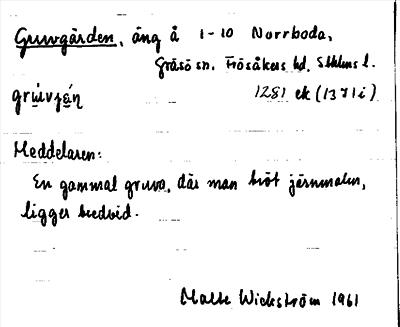 Gruvgården, äng å 1-10 Norrboda,
Gräsö sn. Frösåkers hd. Sthlms l.
1281 ek (13 I 1 i)
Meddelaren:
En gammal gruva, där man bröt järnmalm,
ligger bredvid.
Malte Wickström 1961